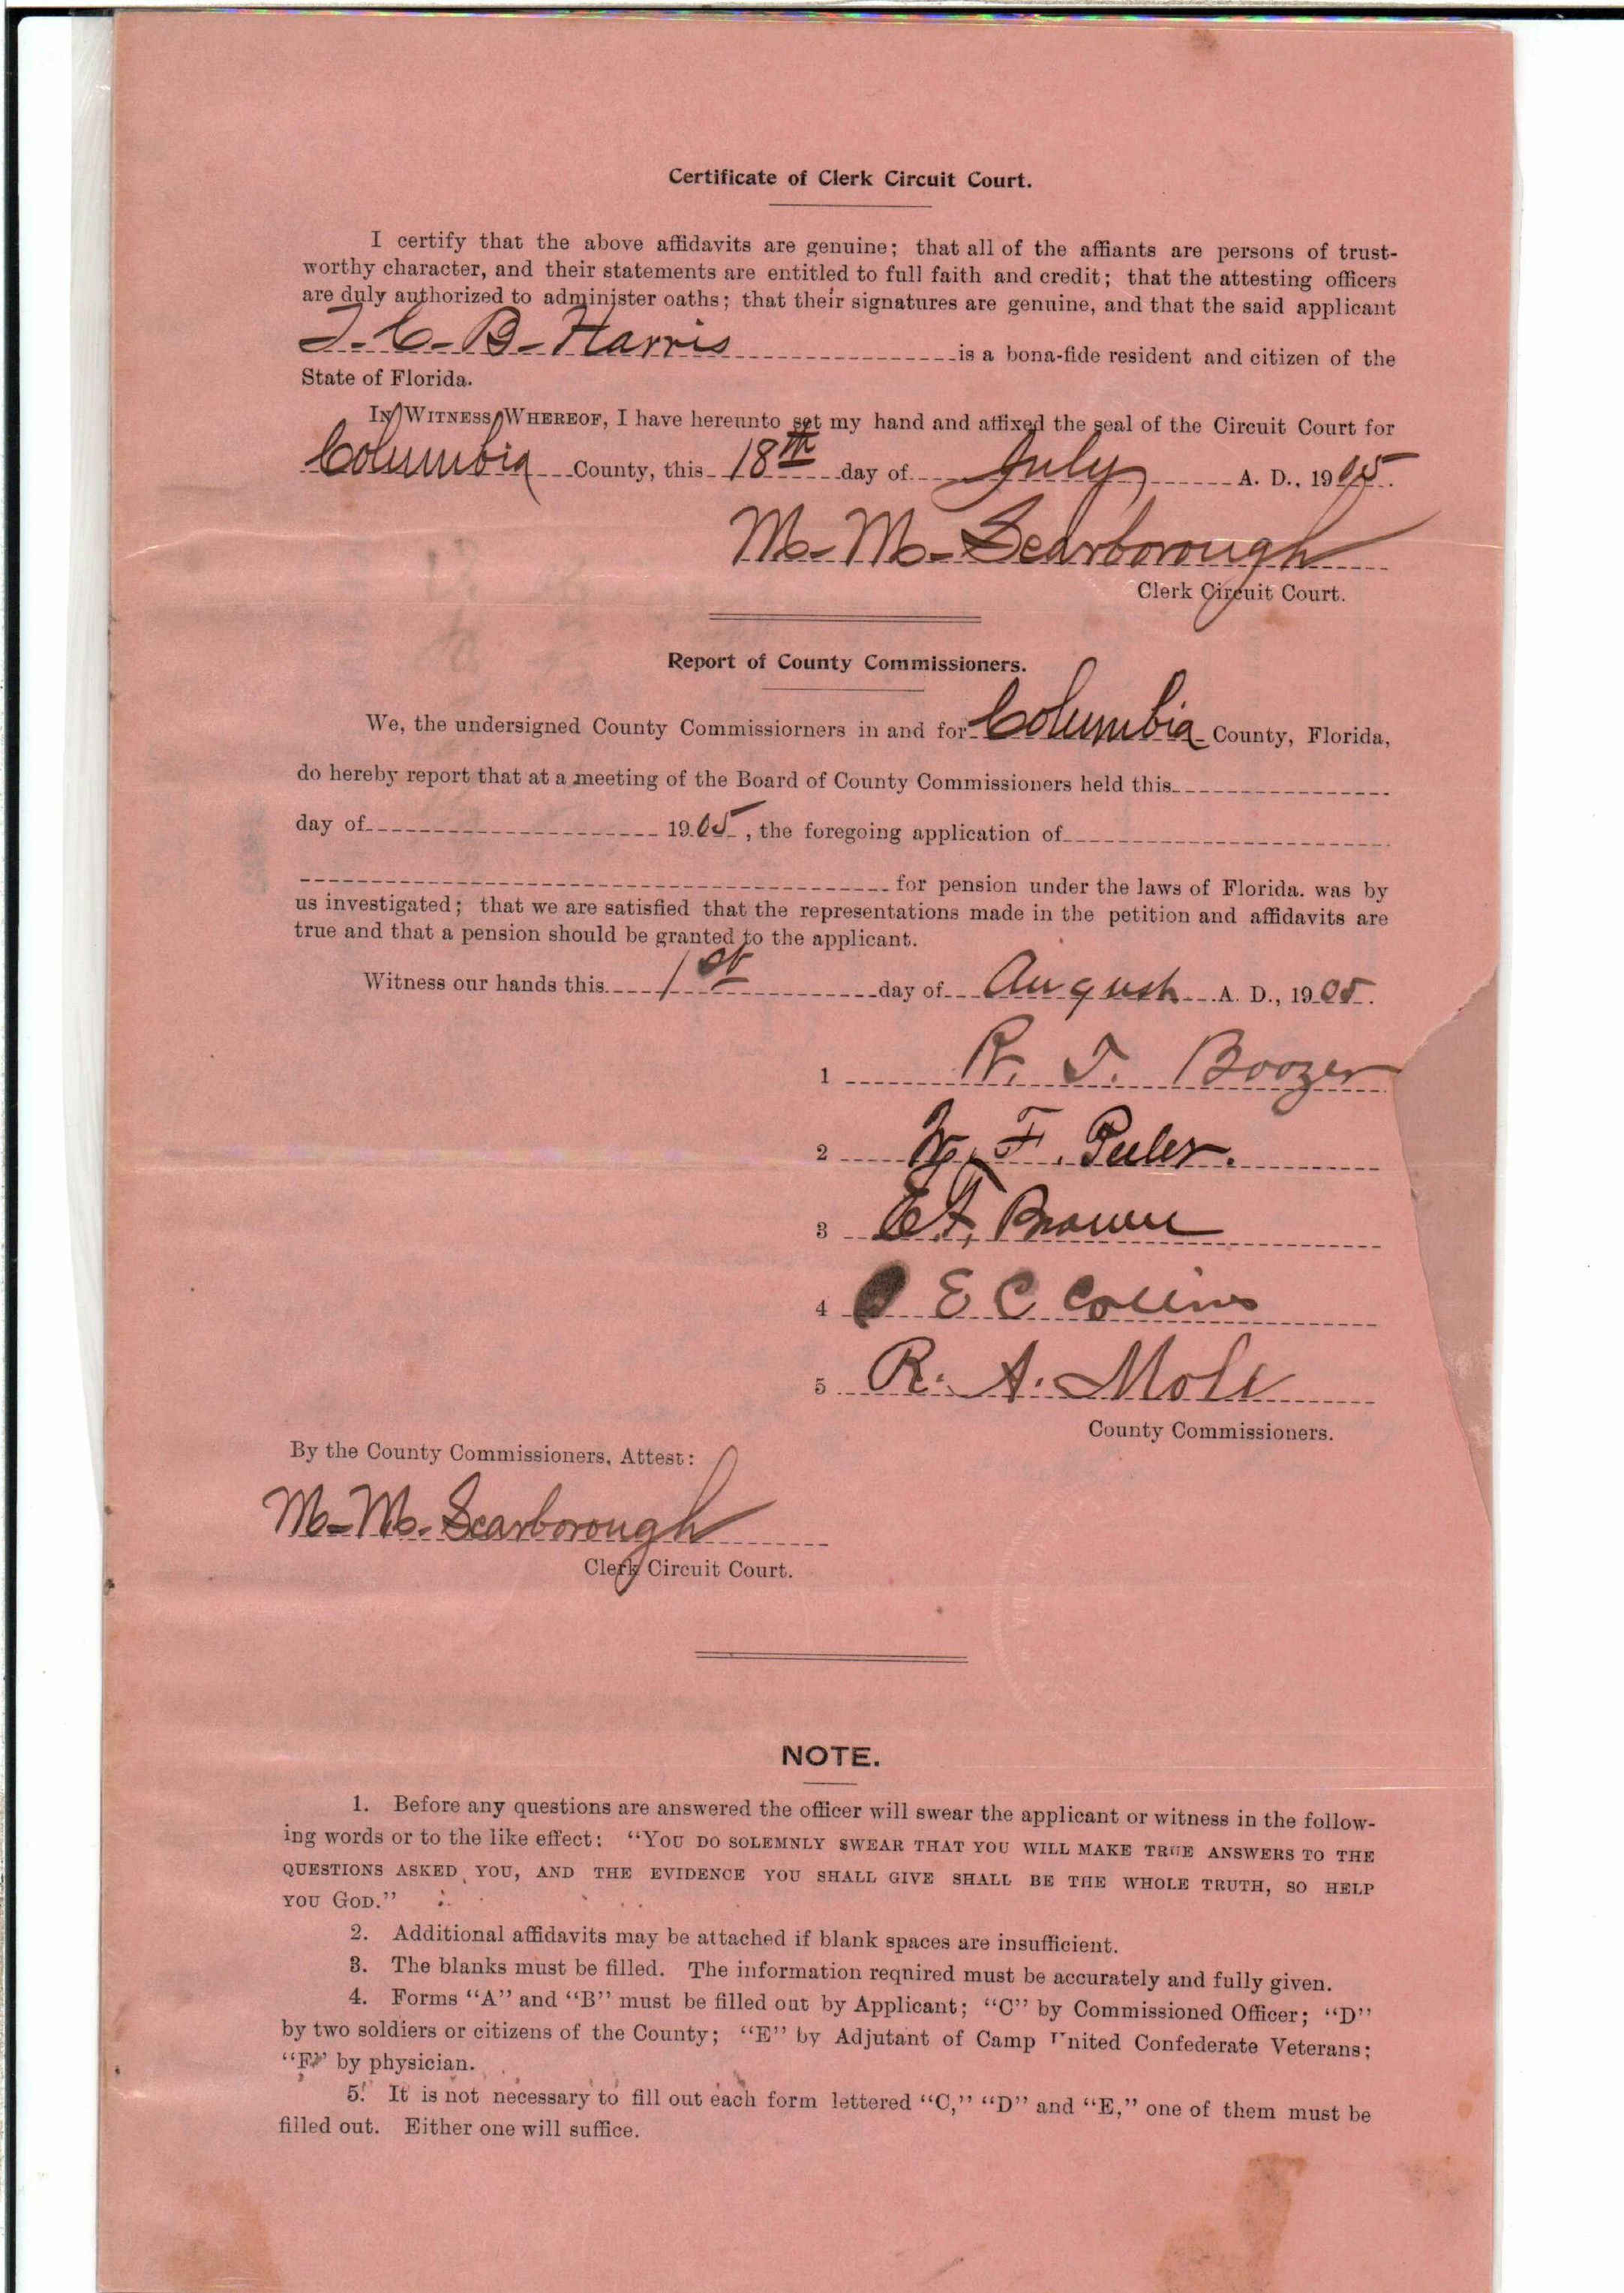 Certificate of Clerk Circuit Court.
I certify that the above affidavits are genuine; that all of the affiants are persons of trust-
worthy character, and their statements are entitled to full faith and credit; that the attesting officers
are duly authorized to administer oaths; that their signatures are genuine, and that the said applicant
T. C. B. Harris is a bona-fide resident and citizen of the
State of Florida.
IN WITNESS WHEREOF, I have hereunto set my hand and affixed the seal of the Circuit Court for
Columbia County, this 18th day of July A. D., 1905.
M. M. Scarborough
Clerk Circuit Court.
Report of County Commissioners.
We, the undersigned County Commissiorners in and for Columbia County, Florida,
do hereby report that at a meeting of the Board of County Commissioners held this
day of 1905, the foregoing application of
for pension under the laws of Florida. was by
us investigated; that we are satisfied that the representations made in the petition and affidavits are
true and that a pension should be granted to the applicant.
Witness our hands this 1st day of August A. D., 1905.
1 R. T. Boozer
2 F. Peeler.
3 Brown
4 E C Collins
5 R. A. Mole
County Commissioners.
By the County Commissioners, Attest:
M. M. Scarborough
Clerk Circuit Court.
NOTE.
1. Before any questions are answered the officer will swear the applicant or witness in the follow-
ing words or to the like effect: “YOU DO SOLEMNLY SWEAR THAT YOU WILL MAKE TRUE ANSWERS TO THE
QUESTIONS ASKED YOU, AND THE EVIDENCE YOU SHALL GIVE SHALL BE THE WHOLE TRUTH, SO HELP
YOU GOD.”
2. Additional affidavits may be attached if blank spaces are insufficient.
3. The blanks must be filled. The information reqnired must be accurately and fully given.
4. Forms “A” and “B” must be filled out by Applicant; “C” by Commissioned Officer; “D”
by two soldiers or citizens of the County; “E” by Adjutant of Camp United Confederate Veterans;
“F” by physician.
5. It is not necessary to fill out each form lettered “C,” “D” and “E,” one of them must be
filled out. Either one will suffice.